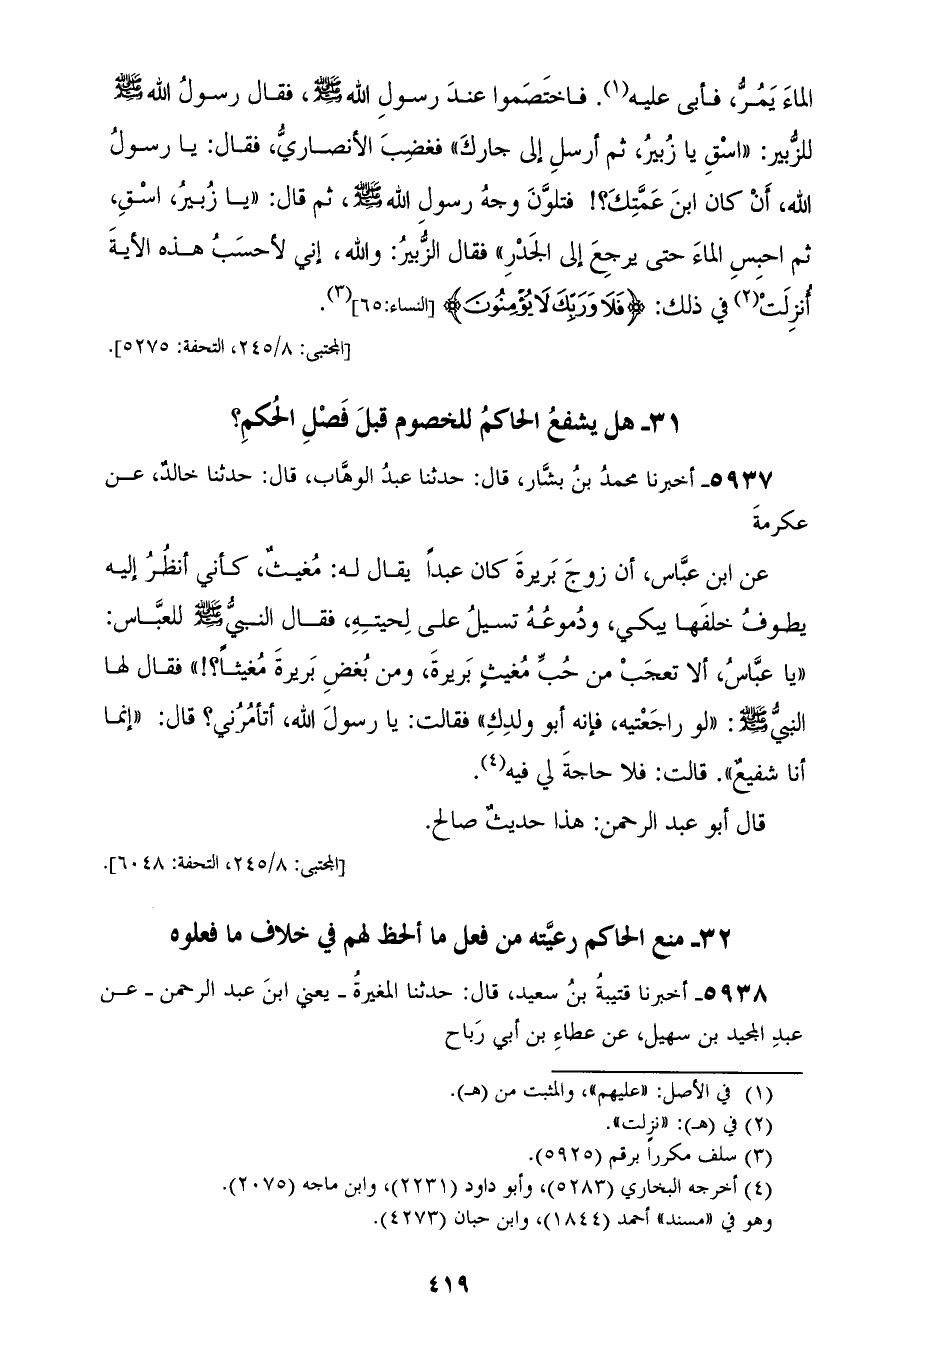 الماءَ يَمُرُّ، فأبى عليه(١). فاختَصَموا عندَ رسولِ الله ﷺ، فقال رسولُ الله ﷺ
للزُّبير: «اسْقِ يا زُبيرُ، ثم أرسل إلى جاركَ» فغضِبَ الأنصاريُّ، فقال: يا رسولُ
الله، أَنْ كان ابنَ عَمَّتِكَ؟! فتلوَّنَ وجهُ رسولِ الله ﷺ، ثم قال: «يا زُبيرُ، اسْقِ،
ثم احبِسِ الماءَ حتى يرجعَ إلى الجَدْرِ» فقال الزُّبيرُ: والله، إني لأحسَبُ هذه الأيةَ
أُنزِلَتْ(٢) في ذلك: ﴿فَلَا وَرَبِّكَ لَا يُؤْمِنُونَ﴾ [النساء:٦٥](٣).
[المجتبى: ٢٤٥/٨، التحفة: ٥٢٧٥].
٣١ـ هل يشفعُ الحاكمُ للخصوم قبلَ فَصْلِ الحُكمِ؟
٥٩٣٧ـ أخبرنا محمدُ بنُ بشَّار، قال: حدثنا عبدُ الوهَّاب، قال: حدثنا خالدٌ، عن
عكرمةَ
عن ابن عبَّاس، أن زوجَ بَريرةَ كان عبداً يقال له: مُغيثٌ، كأني أنظُرُ إليه
يطوفُ خلفَها يبكي، ودُموعُهُ تسيلُ على لِحيتِهِ، فقال النبيُّ ﷺ للعبَّاس:
«يا عبَّاسُ، ألا تعجَبْ من حُبِّ مُغيثٍ بَريرةَ، ومن بُغض بَريرةَ مُغيثاً؟!» فقال لها
النبيُّ ﷺ: «لو راجَعْتيه، فإنه أبو ولدِكِ» فقالت: يا رسولَ الله، أتأمُرُني؟ قال: «إنما
أنا شفيعٌ». قالت: فلا حاجةَ لي فيه(٤).
قال أبو عبد الرحمن: هذا حديثٌ صالح.
[المجتبى: ٢٤٥/٨، التحفة: ٦٠٤٨].
٣٢ـ منع الحاكم رعيَّته من فعل ما ألحظ لهم في خلاف ما فعلوه
٥٩٣٨ـ أخبرنا قتيبةُ بنُ سعيد، قال: حدثنا المغيرةُ ـ يعني ابنَ عبد الرحمن ـ عن
عبدِ المجيد بن سهيل، عن عطاءِ بن أبي رَباح
(١) في الأصل: «عليهم»، والمثبت من (هـ).
(٢) في (هـ): «نزلت».
(٣) سلف مكرراً برقم (٥٩٢٥).
(٤) أخرجه البخاري (٥٢٨٣)، وأبو داود (٢٢٣١)، وابن ماجه (٢٠٧٥).
وهو في «مسند» أحمد (١٨٤٤)، وابن حبان (٤٢٧٣).
٤١٩